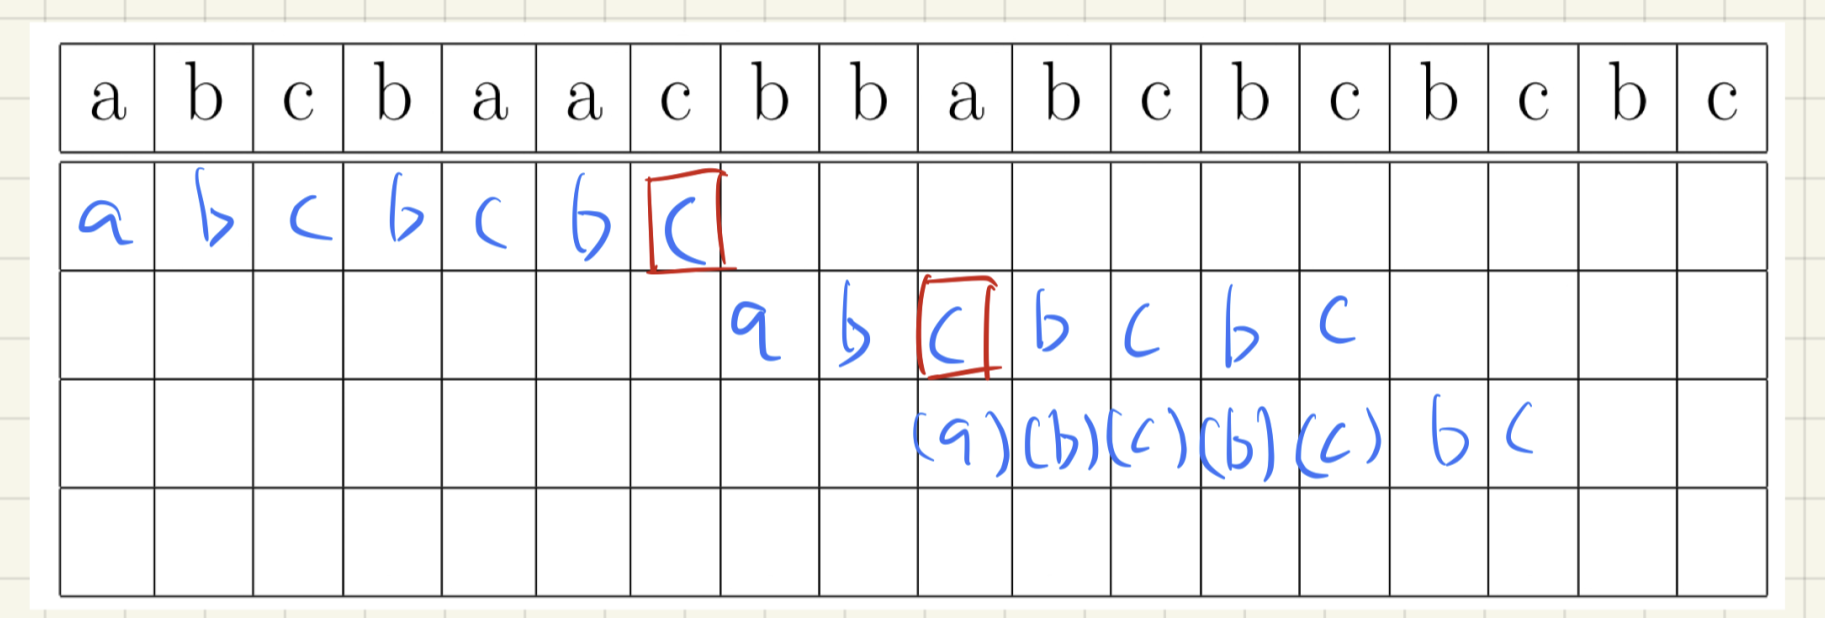 a b c b a a c b b a b c b c b c b c
a b c b c b c
a b c b c b c
(a) (b) (c) (b) (c) b c